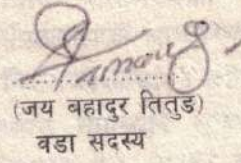 (जय बहादुर तितुङ)
वडा सदस्य